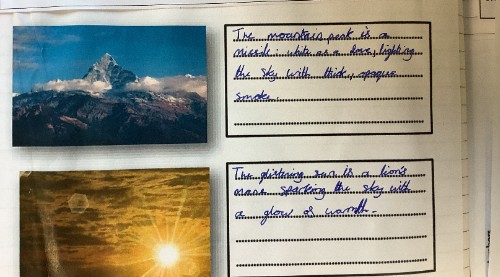 The mountain peak is a
missile: white as a dove, lighting
the sky with thick, opaque
smoke.
The glistening sun is a lion's
mane sparking the sky with
a glow of warmth.